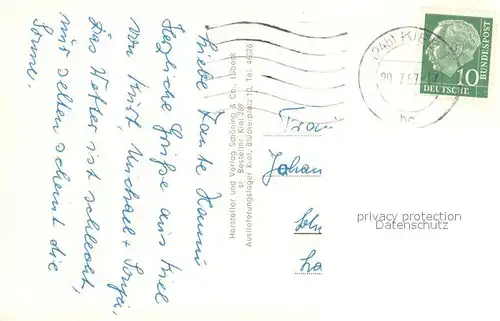 Liebe Tante Hanni
Herzliche Grüße aus Kiel
von Kurt, Michael + Sonja.
Das Wetter ist schlecht,
nur selten scheint die
Sonne.
Hersteller und Verlag Schöning & Co., Lübeck
Bestellnr. Kiel 269
Auslieferungslager Kiel, Blücherplatz 10, Tel. 46226
(24b) KIEL
10
DEUTSCHE
BUNDESPOST
Johan
privacy protection
Datenschutz